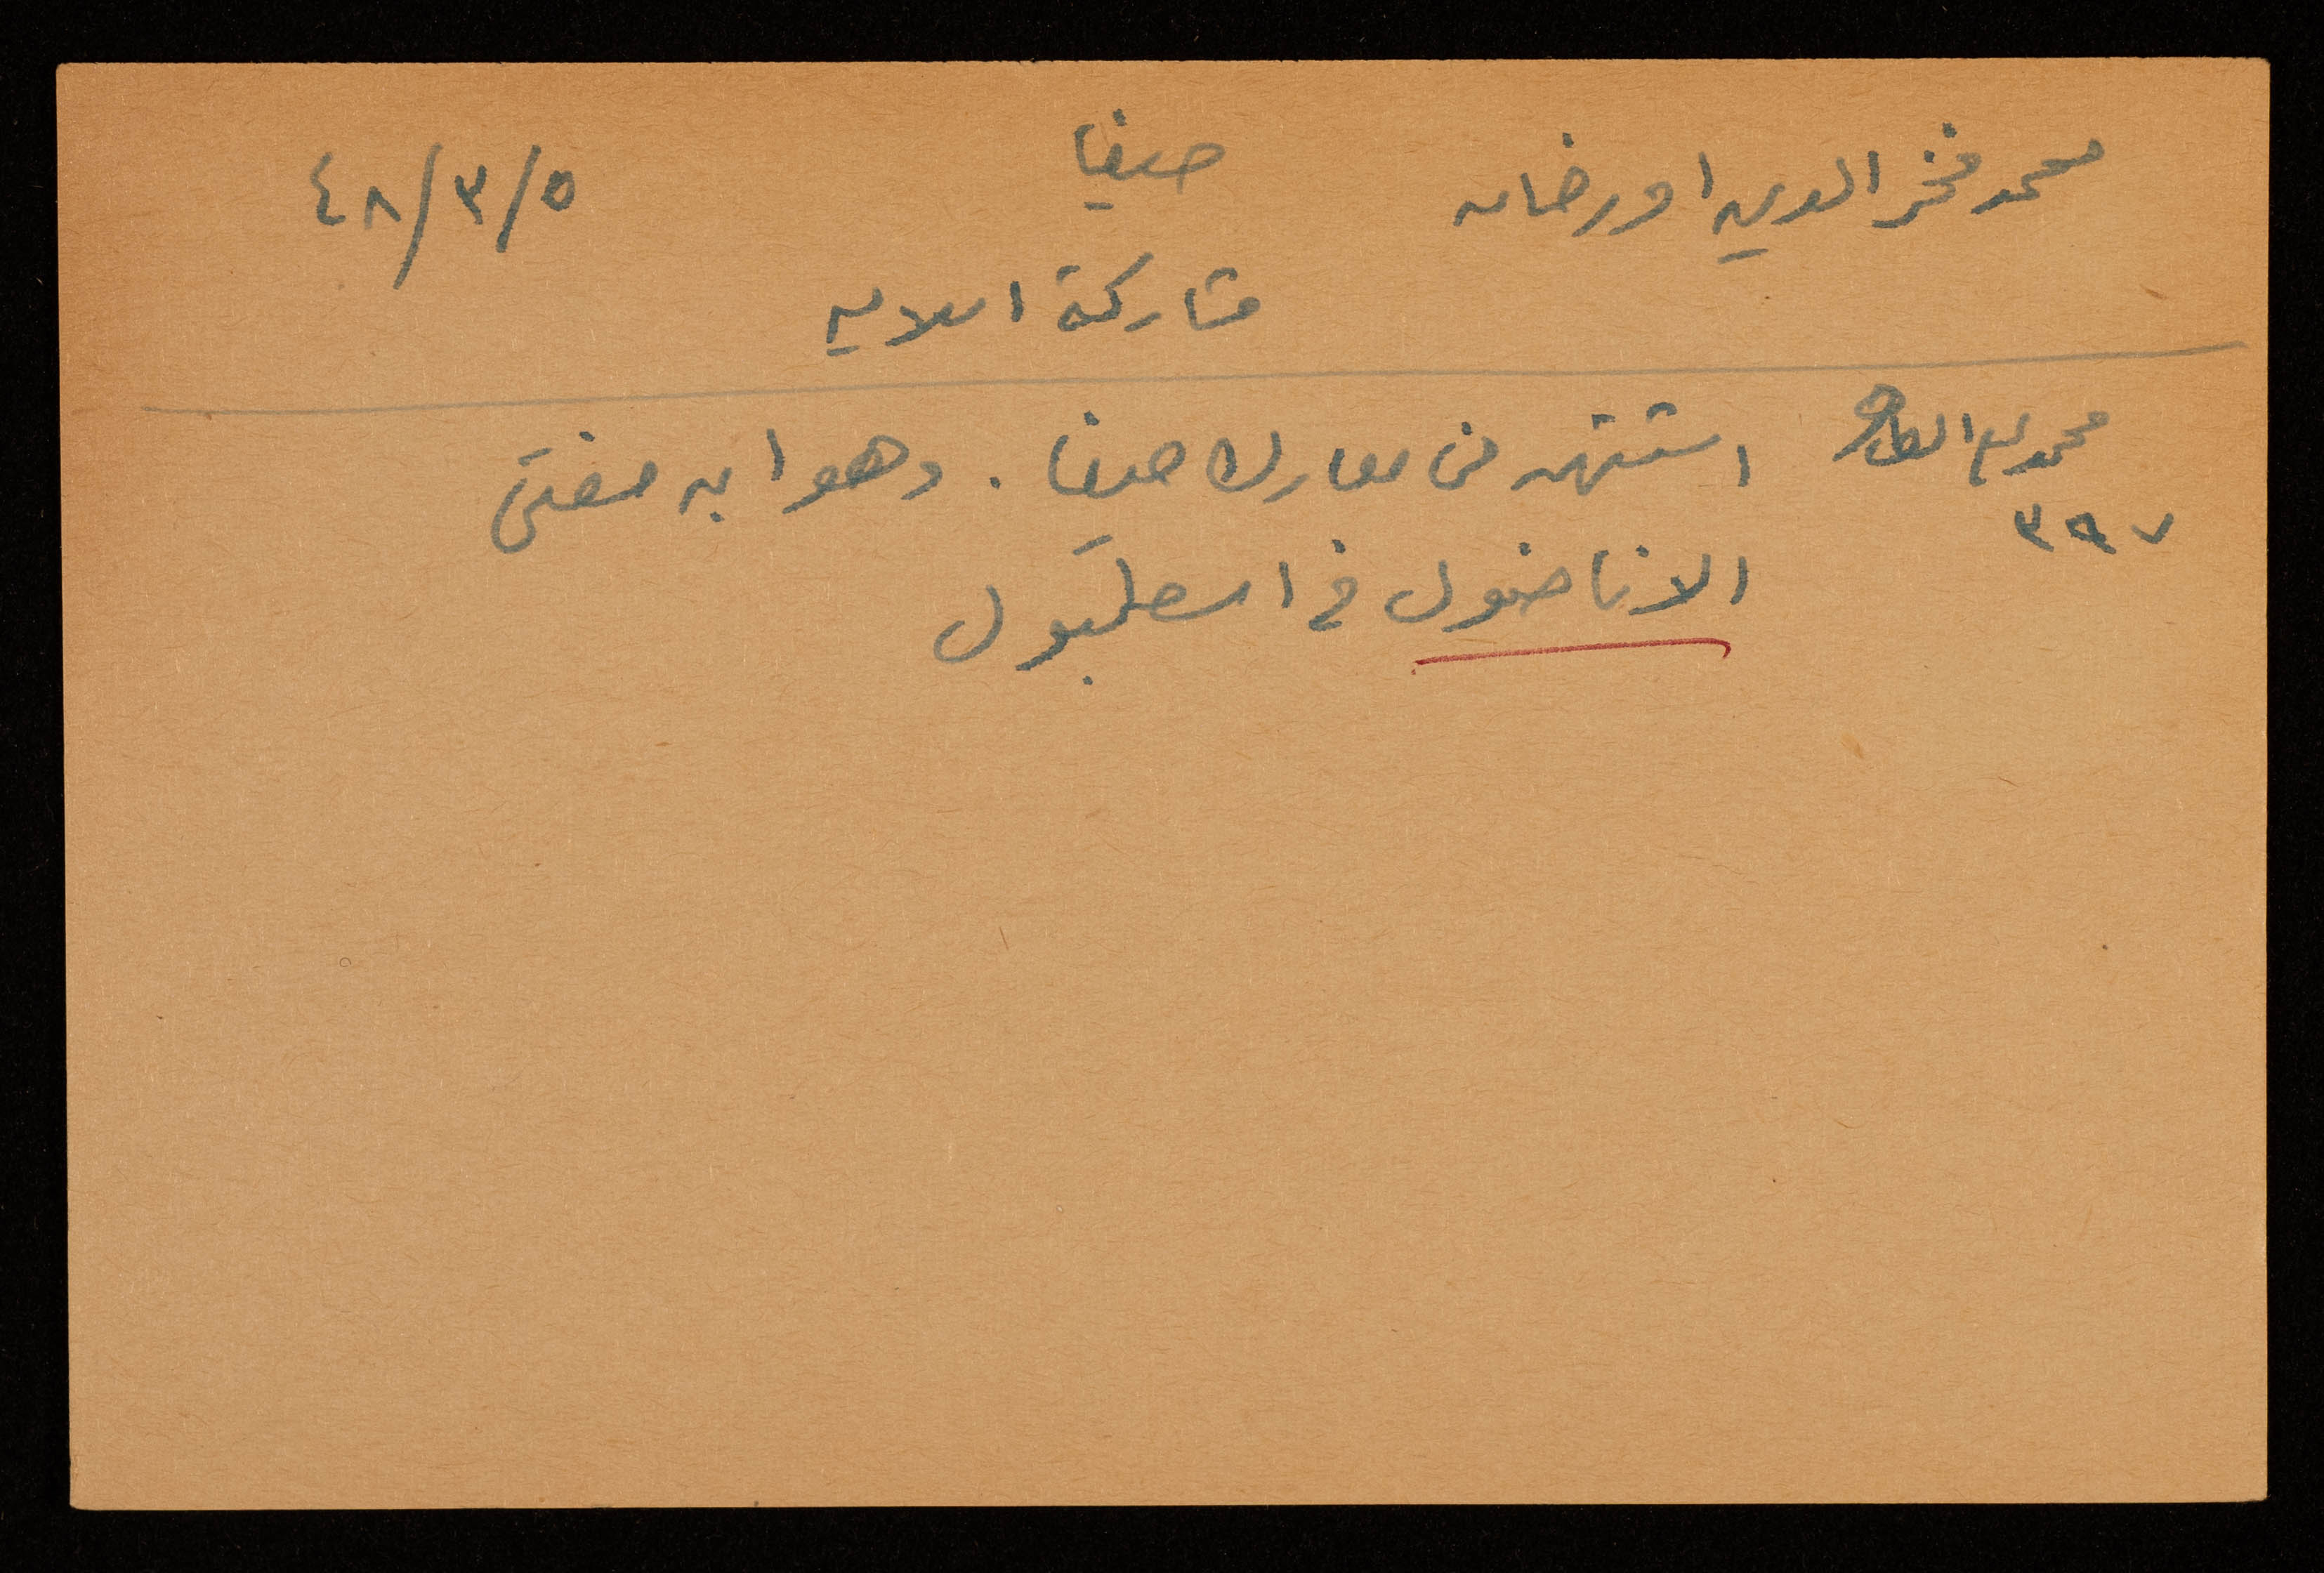 محمد فخر الدين اورخان حيفا ٤٨/٣/٥
مشاركة اسلامية
محمد نمر استشهد في معارك حيفا . وهو ابن مفتي
٣٩٧
الاناضول في اسطمبول